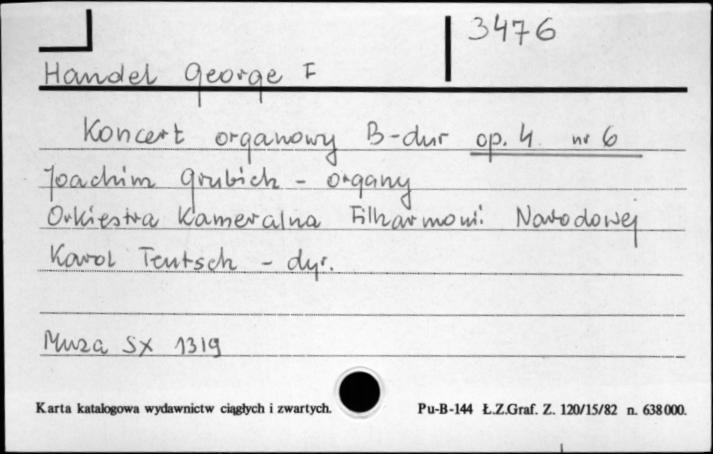 3476
Handel George F
Koncert organowy B-dur op. 4 nr 6
Joachim Grubich - organy
Orkiestra Kameralna Filharmoni. Narodowej
Karol Teutsch - dyr.
Muza SX 1319
Karta katalogowa wydawnictw ciągłych i zwartych. Pu-B-144 Ł.Z.Graf. Z. 120/15/82 n. 638000.